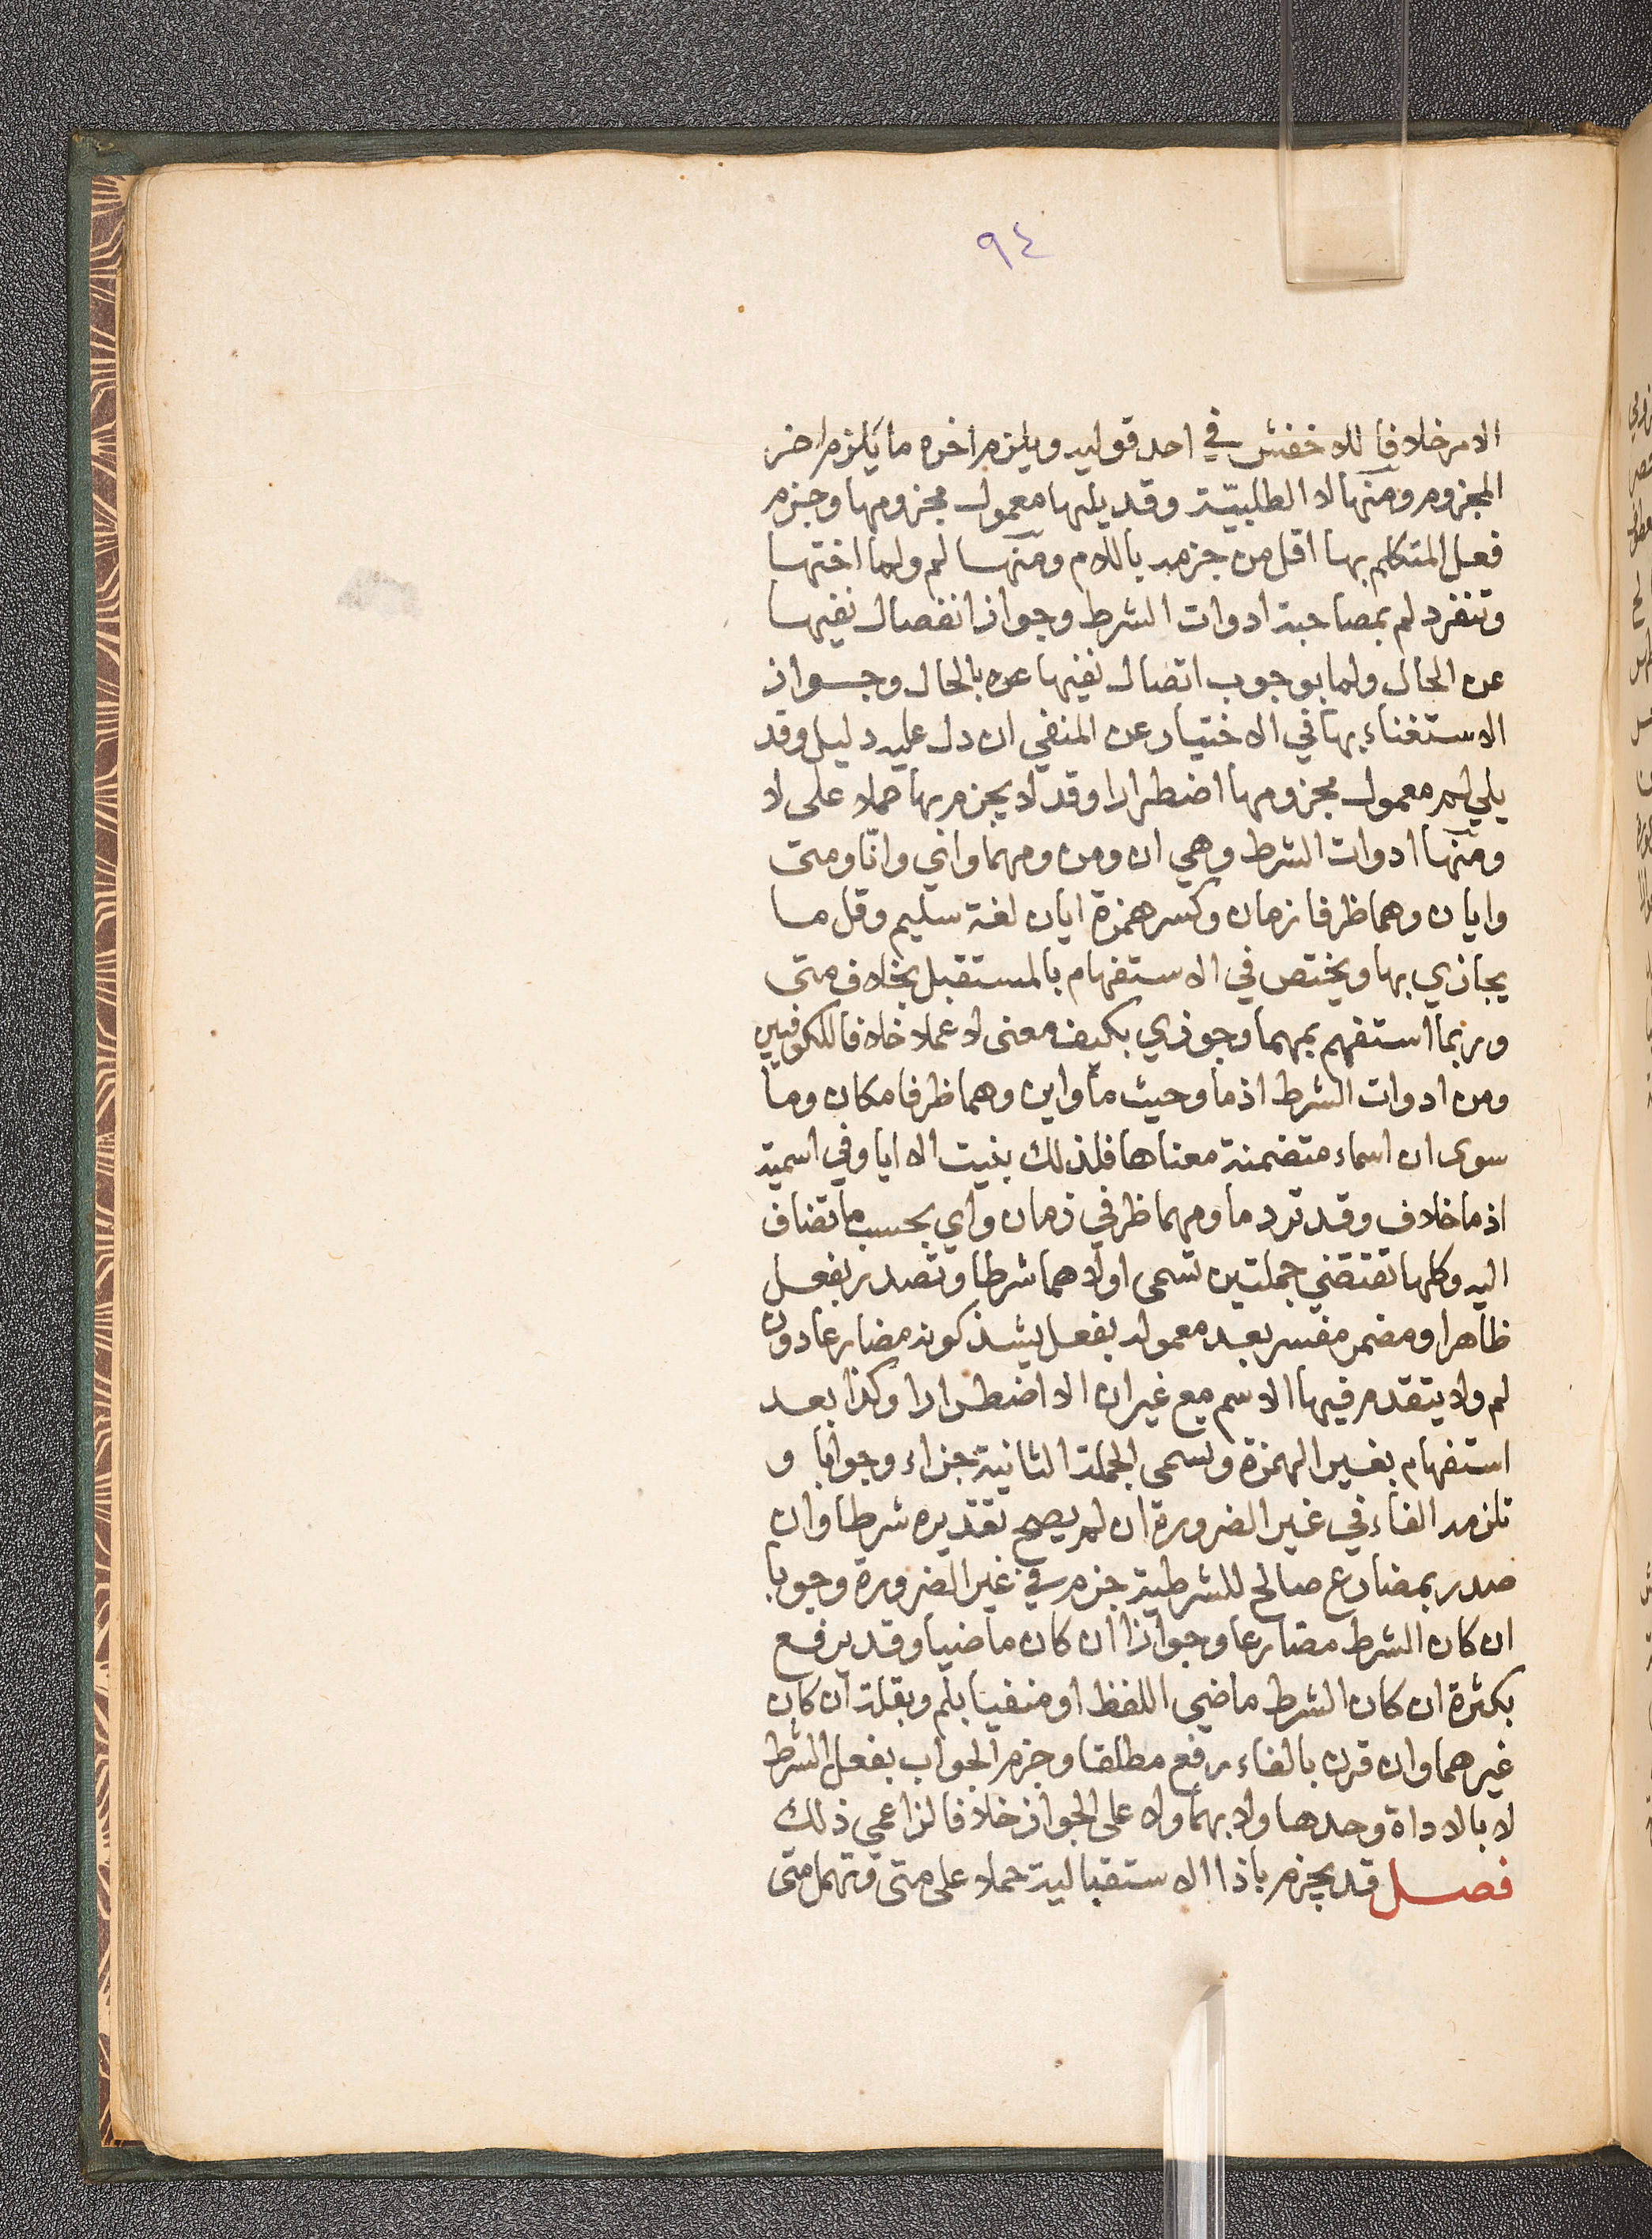 ٩٤
الامر خلافا للاخفش في احد قوليه ويلزم اخره ما يلزم اخر
المجزوم ومنها لا الطلبيّة وقد يليها معمول مجزومها وجزم
فعل المتكلم بها اقل من جزمه باللام ومنها لم ولما اختها
وتنفرد لم بمصاحبة ادوات الشرط وجواز انفصال نفيها
عن الحال ولما بوجوب اتصال نفيها عن بالحال وجواز
الاستغناء بها في الاختيار عن المنفي ان دل عليه دليل وقد
يلي لم معمول مجزومها اضطرارا وقد لا يجزم بها حملا على لا
ومنها ادوات الشرط وهي ان ومن ومهما واي وانّا ومتى
وايان وهما ظرفا زمان وكسر همزة ايان لغة سليم وقل ما
يجازي بها ويختص في الاستفهام بالمستقبل بخلاف متى
وربما استفهم بمهما وجوزي بكيف معنى لا عملا خلافا للكوفيين
ومن ادوات الشرط اذما وحيث ما واين وهما ظرفا مكان وما
سوى ان اسماء متضمنة معناها فلذلك بنيت الا ايا وفي اسمية
اذما خلاف وقد ترد ما ومهما ظرفي زمان واي بحسب ما تضاف
اليه وكلها تقتضي جملتين تسمى اولاهما شرطا وتصدر بفعل
ظاهر او مضمر مفسر بعد معموله بفعل يشذ كونه مضارعا دون
لم ولا يتقدم فيها الاسم مع غير ان الا اضطرارا وكذا بعد
استفهام بغير الهمزة وتسمى الجملة الثانية جزاء وجوابا و
تلزمه الفاء في غير الضرورة ان لم يصح تقديره شرطا وان
صدر بمضارع صالح للشرطية جزم في غير الضرورة وجوبا
ان كان الشرط مضارعا وجوازا ان كان ماضيا وقد يرفع
بكثرة ان كان الشرط ماضي اللفظ او منفيا بلم وبقلة ان كان
غيرهما وان قرن بالفاء رفع مطلقا وجزم الجواب بفعل الشرط
لا بالاداة وحدها ولا بهما ولا على الجواز خلافا لزاعمي ذلك
فصل قد يجزم باذا الاستقبالية حملا على متى وتهمل متى